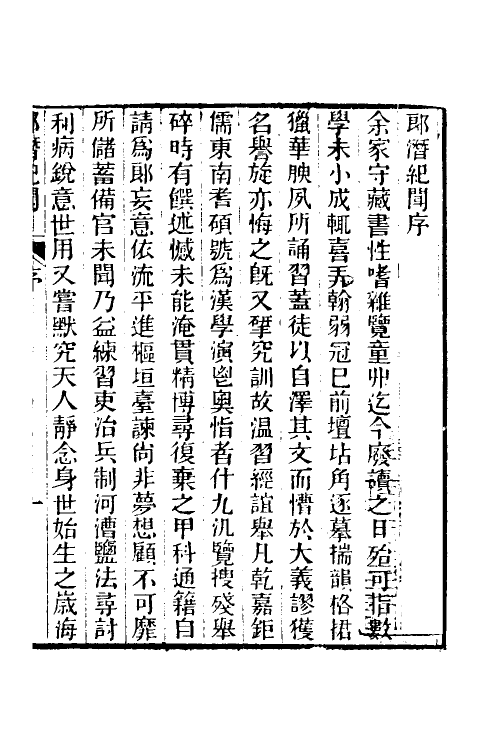 郎潛紀聞序
余家守藏書性嗜雜覽童丱迄今廢讀之日殆可指數
學未小成輒喜弄翰弱冠已前壇坫角逐墓揣韻格捃
獵華腴夙所誦習蓋徒以自澤其文而懵於大義謬獲
名譽旋亦悔之旣又揅究訓故温習經誼舉凡乾嘉鉅
儒東南耆碩號爲漢學演鬯奧恉者什九汎覽搜殘舉
碎時有饌述憾未能淹貫精博尋復棄之甲科通籍自
請爲郎妄意依流平進樞垣臺諫尙非夢想顧不可靡
所儲蓄備官未聞乃益練習吏治兵制河漕鹽法尋討
利病銳意世用又嘗默究天人靜念身世始生之歲海
郎潛紀聞
序
一